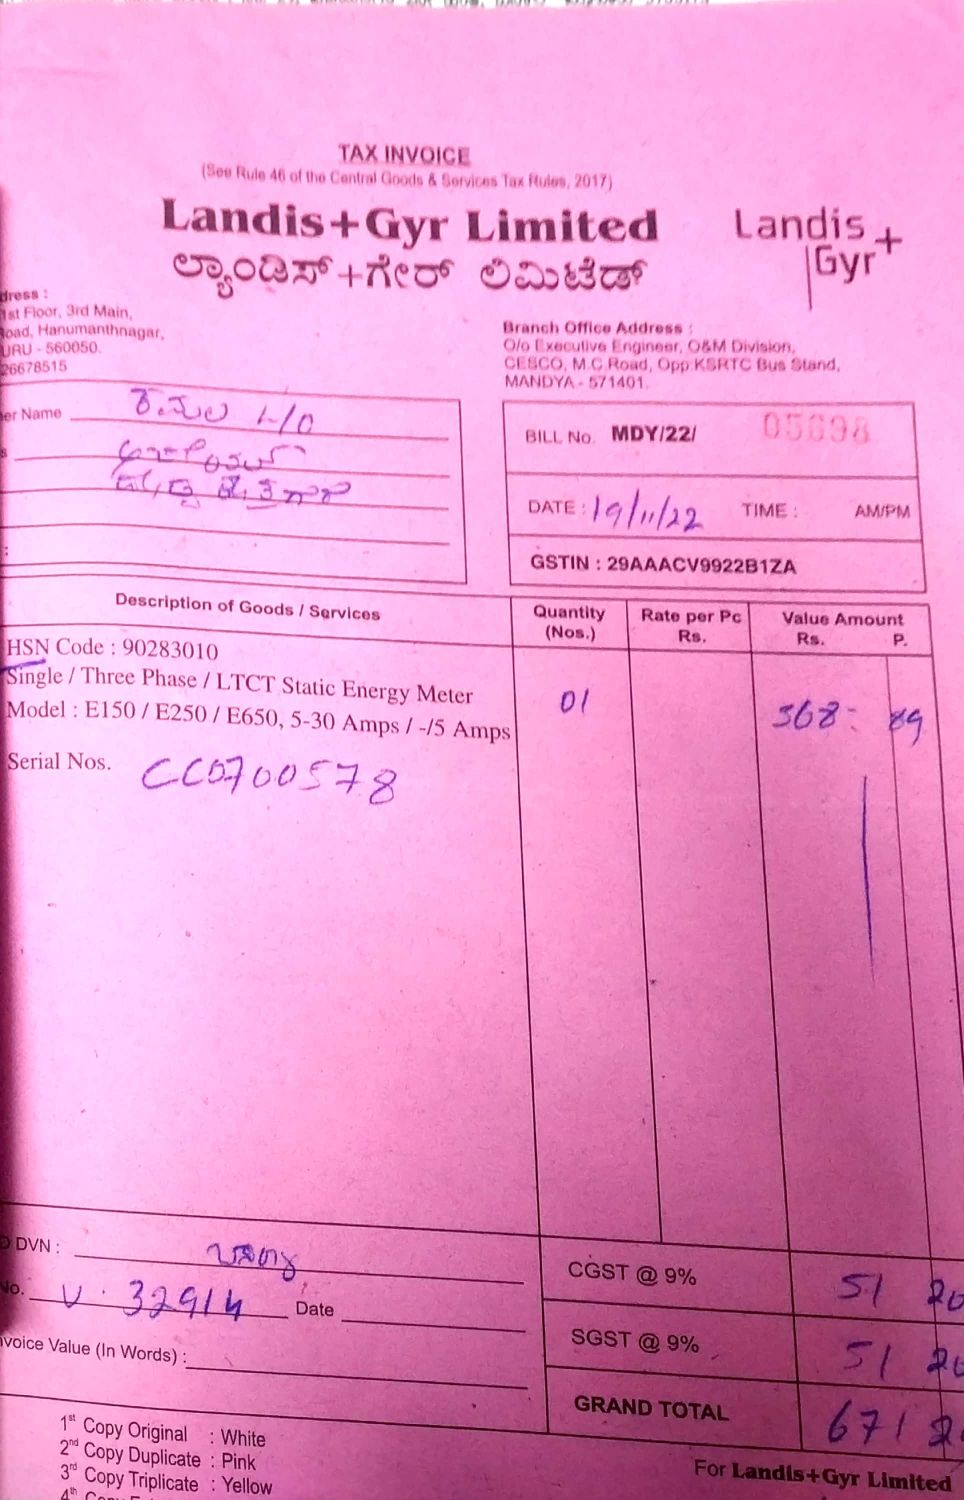 TAX INVOICE
(See Rule 46 of the Central Goods & Services Tax Rules, 2017)
Landis+Gyr Limited
ಲ್ಯಾಂಡಿಸ್+ಗೇರ್ ಲಿಮಿಟೆಡ್
Landis
Gyr+
dress :
1st Floor, 3rd Main,
oad, Hanumanthnagar,
URU - 560050.
26678515
Branch Office Address :
O/o Executive Engineer, O&M Division,
CESCO, M.C.Road, Opp.KSRTC Bus Stand,
MANDYA - 571401.
er Name
BILL No. MDY/22/ 05698
DATE : 19/11/22 TIME : AM/PM
GSTIN : 29AAACV9922B1ZA
Description of Goods / Services Quantity (Nos.) Rate per Pc Rs. Value Amount Rs. P.
HSN Code : 90283010
Single / Three Phase / LTCT Static Energy Meter
Model : E150 / E250 / E650, 5-30 Amps / -/5 Amps 01 568- 89
Serial Nos. CC0700578
DVN :
No. V. 32914 Date
nvoice Value (In Words) :
CGST @ 9% 51 20
SGST @ 9% 51 20
GRAND TOTAL 671 2
1st Copy Original : White
2nd Copy Duplicate : Pink
3rd Copy Triplicate : Yellow
4th
For Landis+Gyr Limited